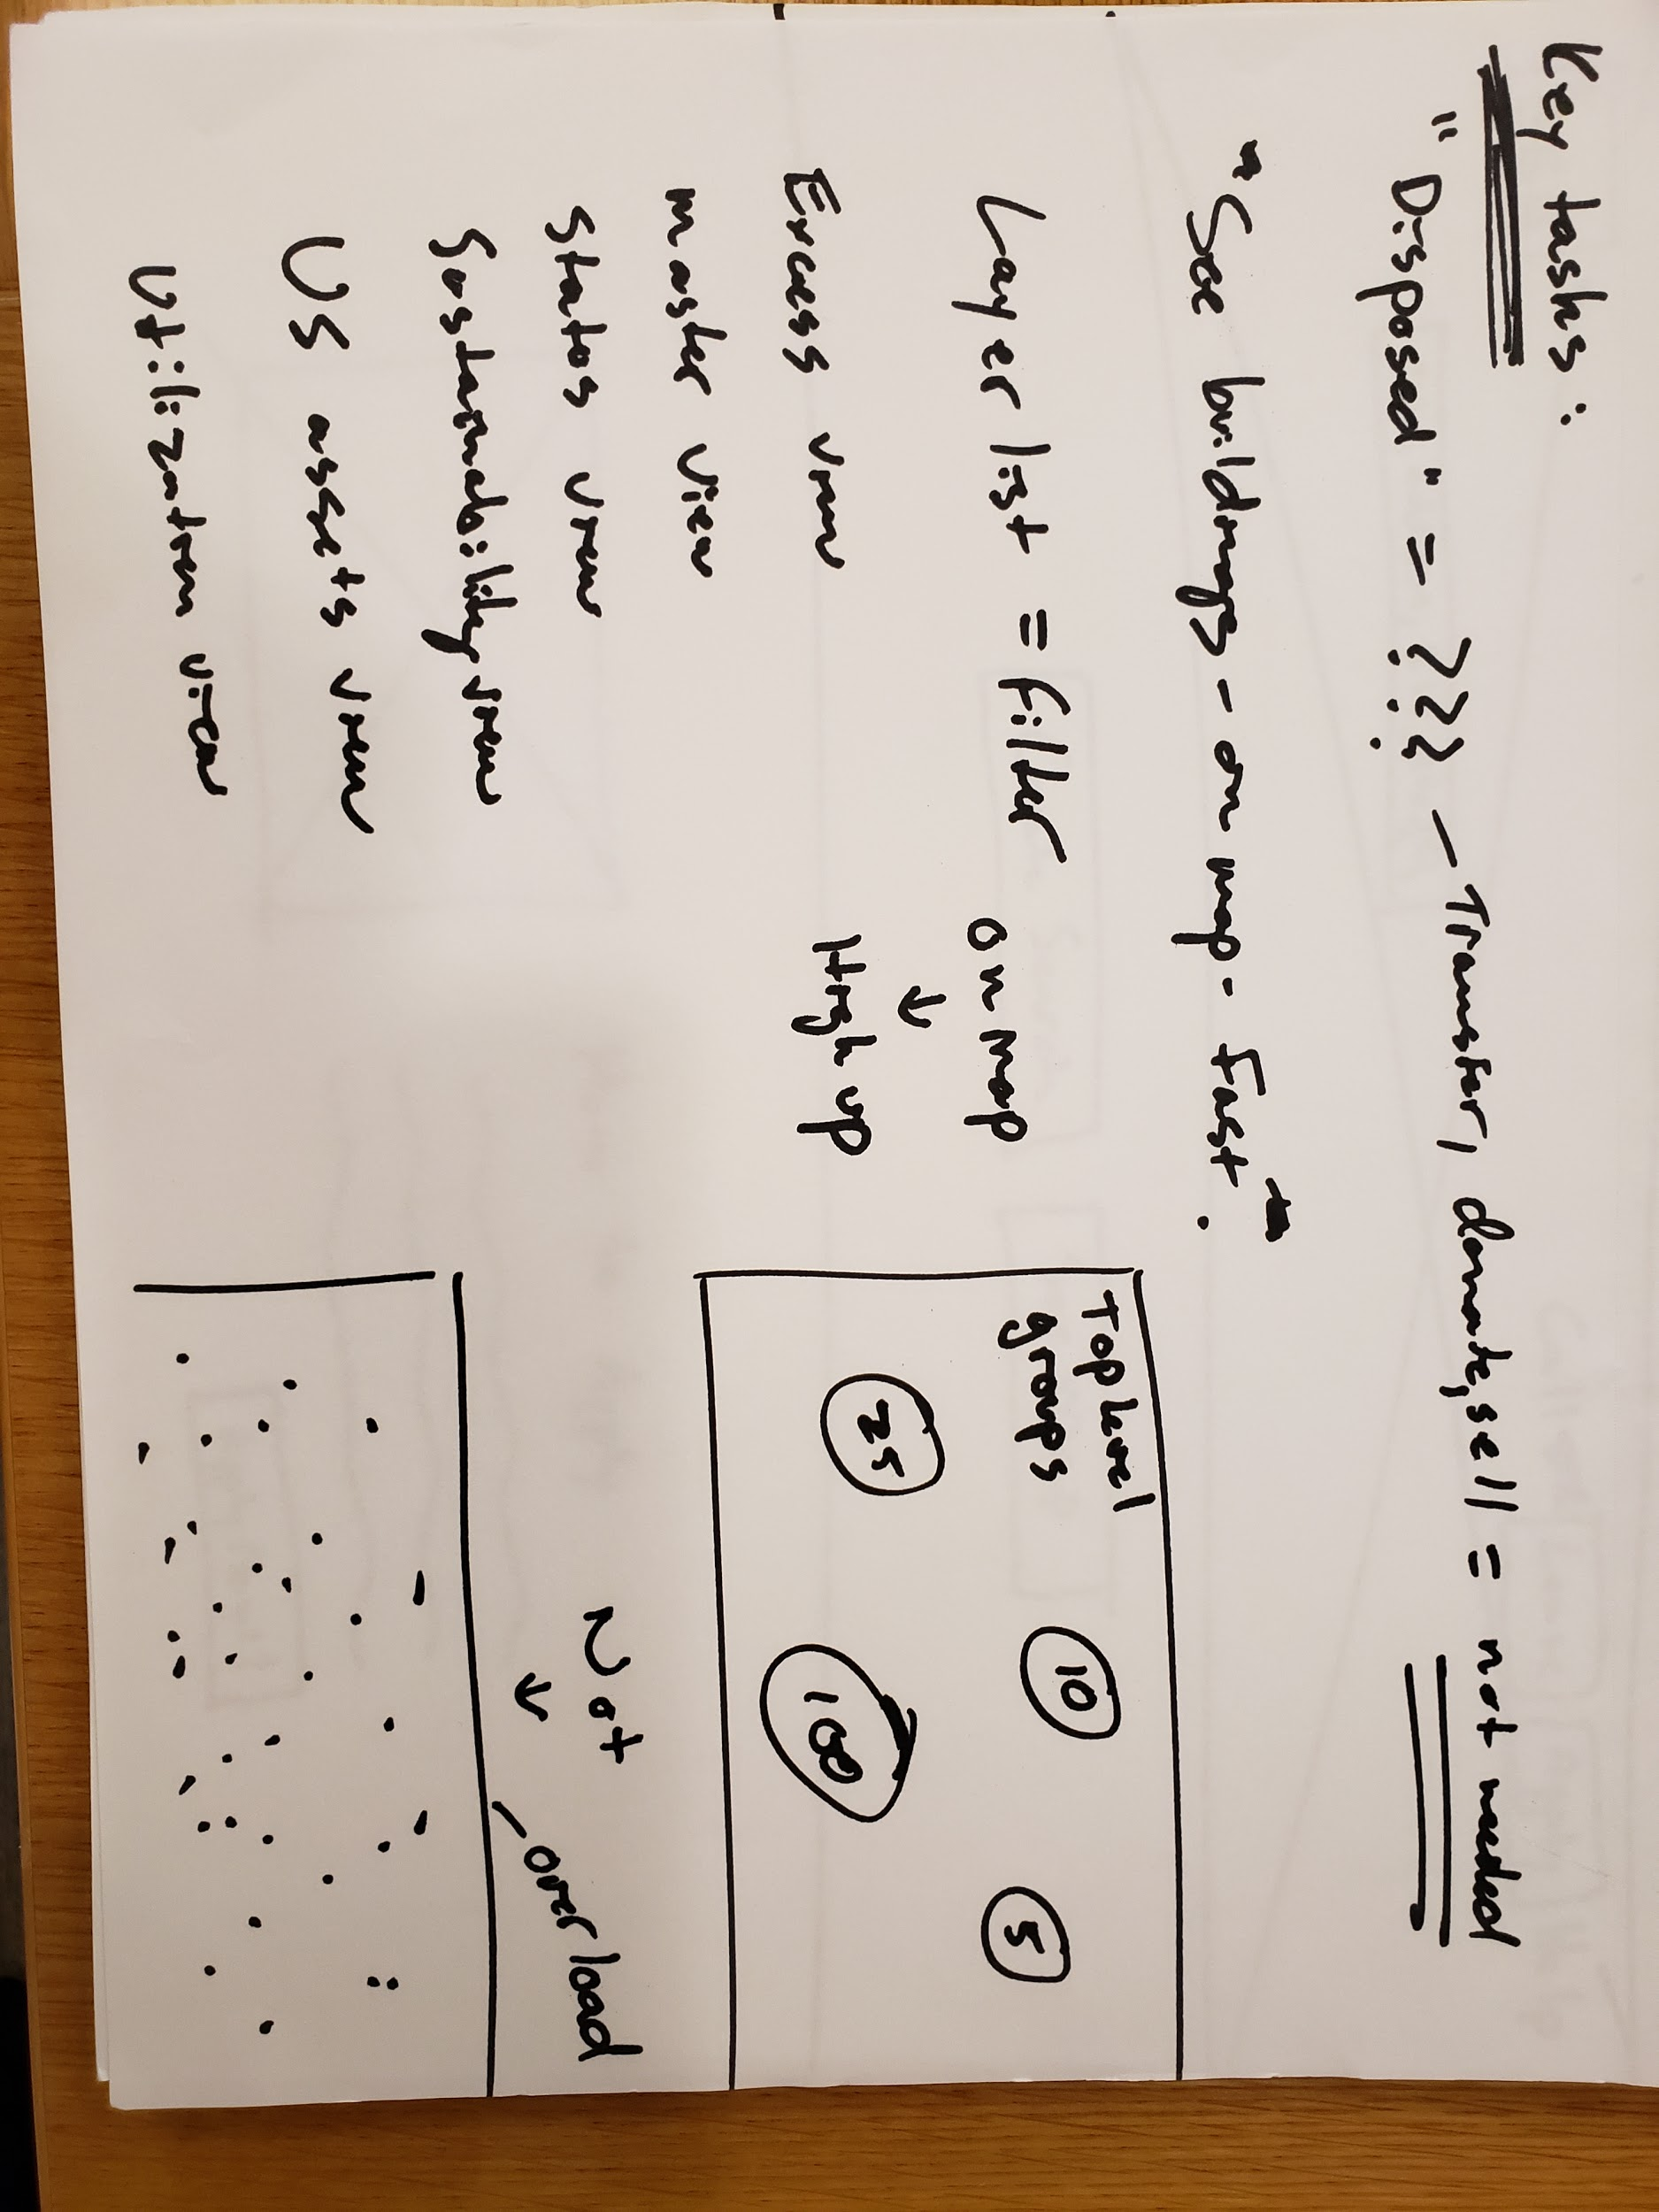 Key tasks:
"Disposed" = ??? - Transfer, donate, sell = not needed
"See buildings - on map - fast".
Layer list = filter
Excess view
Master view
Status view
Sustainability view
US assets view
Utilization view
on map
↓
High up
Top level
groups
10
5
25
100
Not
↓
- overload